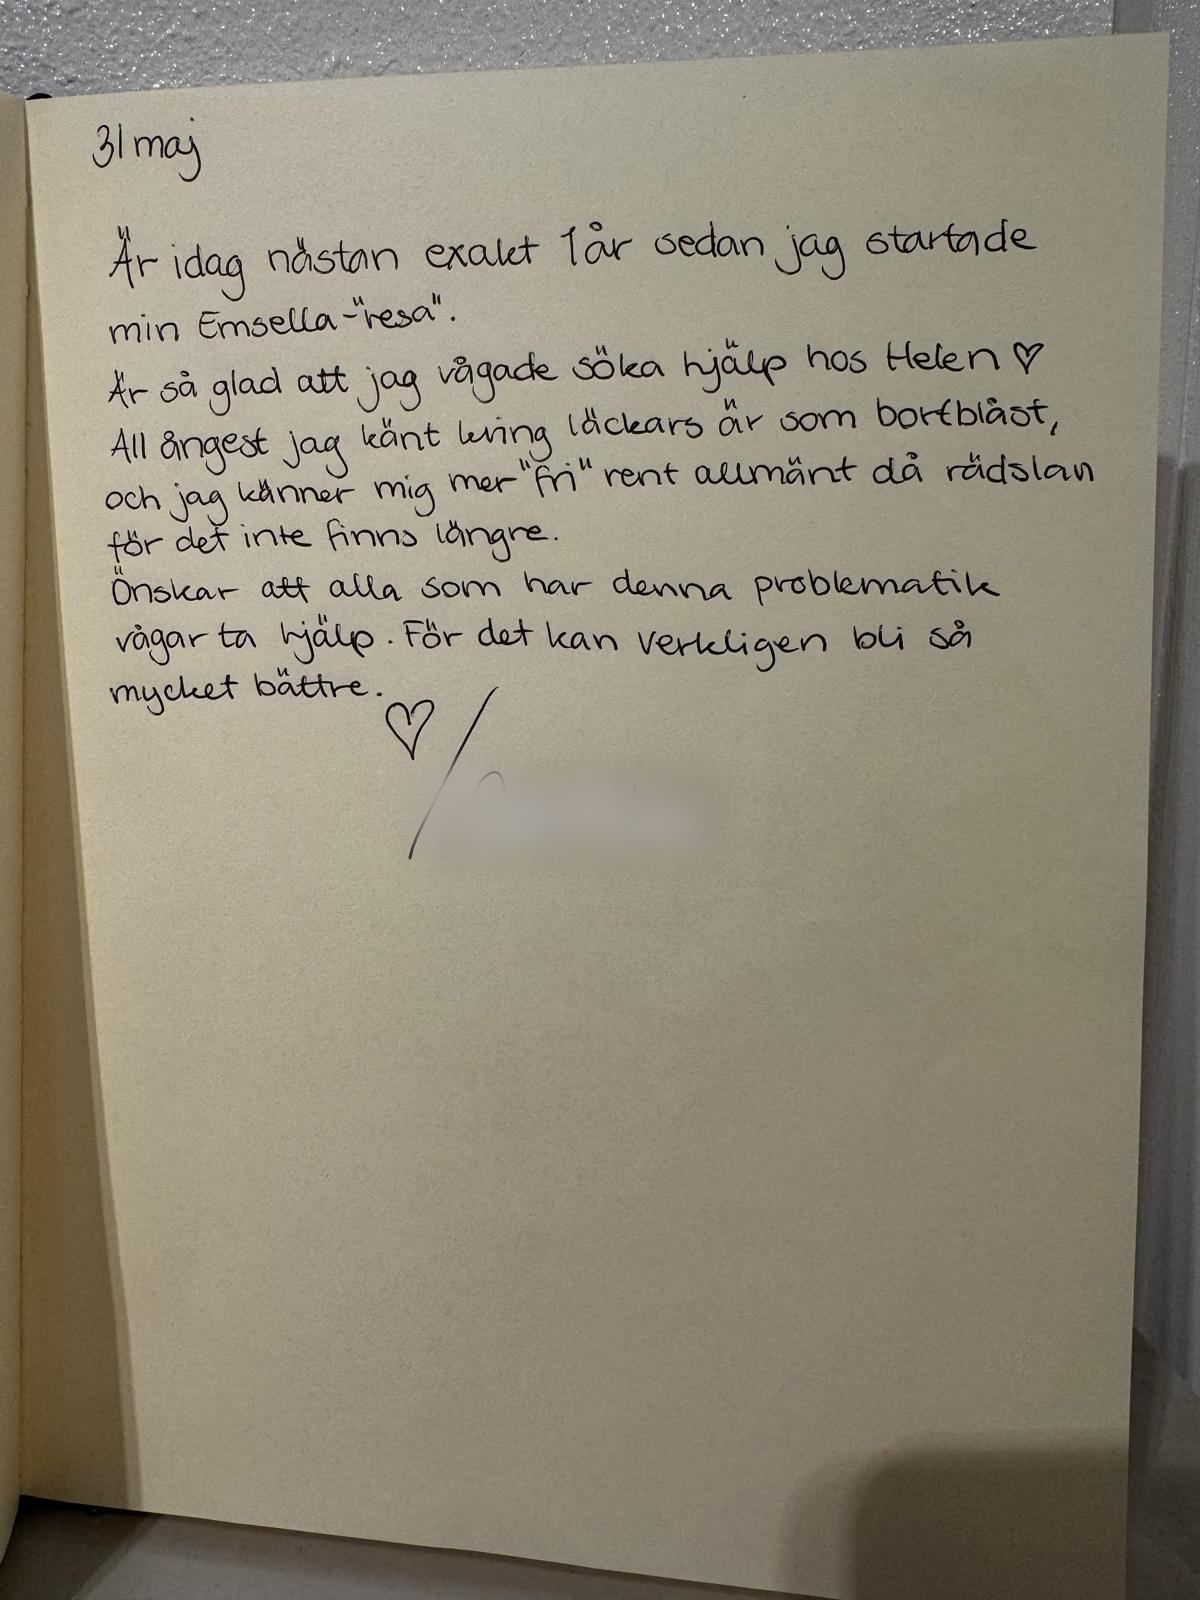 31 maj
Är idag nästan exakt 1 år sedan jag startade
min Emsella-"resa".
Är så glad att jag vågade söka hjälp hos Helen ♡
All ångest jag känt kring läckars är som bortblåst,
och jag känner mig mer "fri" rent allmänt då rädslan
för det inte finns längre.
Önskar att alla som har denna problematik
vågar ta hjälp. För det kan verkligen bli så
mycket bättre.
♡ /